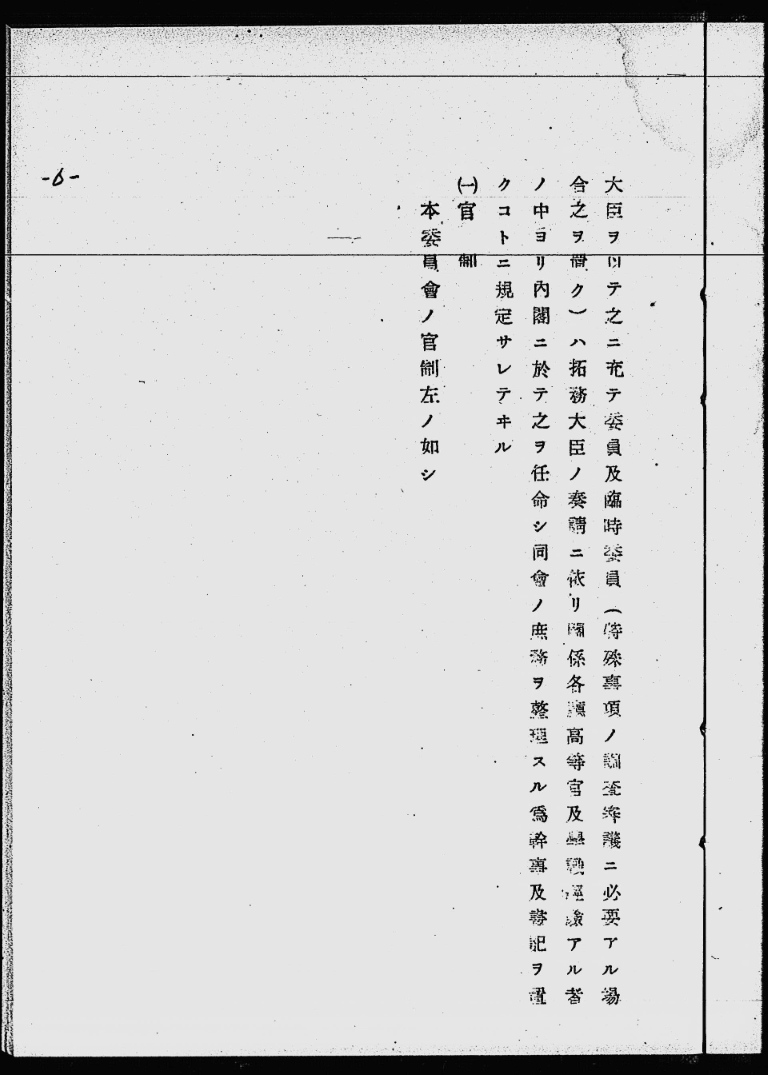 大臣ヲ以テ之ニ充テ委員及臨時委員(特殊事項ノ調査審議ニ必要アル場
合之ヲ置ク)ハ拓務大臣ノ奏請ニ依リ關係各廳高等官及學識經驗アル者
ノ中ヨリ內閣ニ於テ之ヲ任命シ同會ノ庶務ヲ整理スル爲幹事及書記ヲ置
クコトニ規定サレテヰル
㈠官制
本委員會ノ官制左ノ如シ
-6-